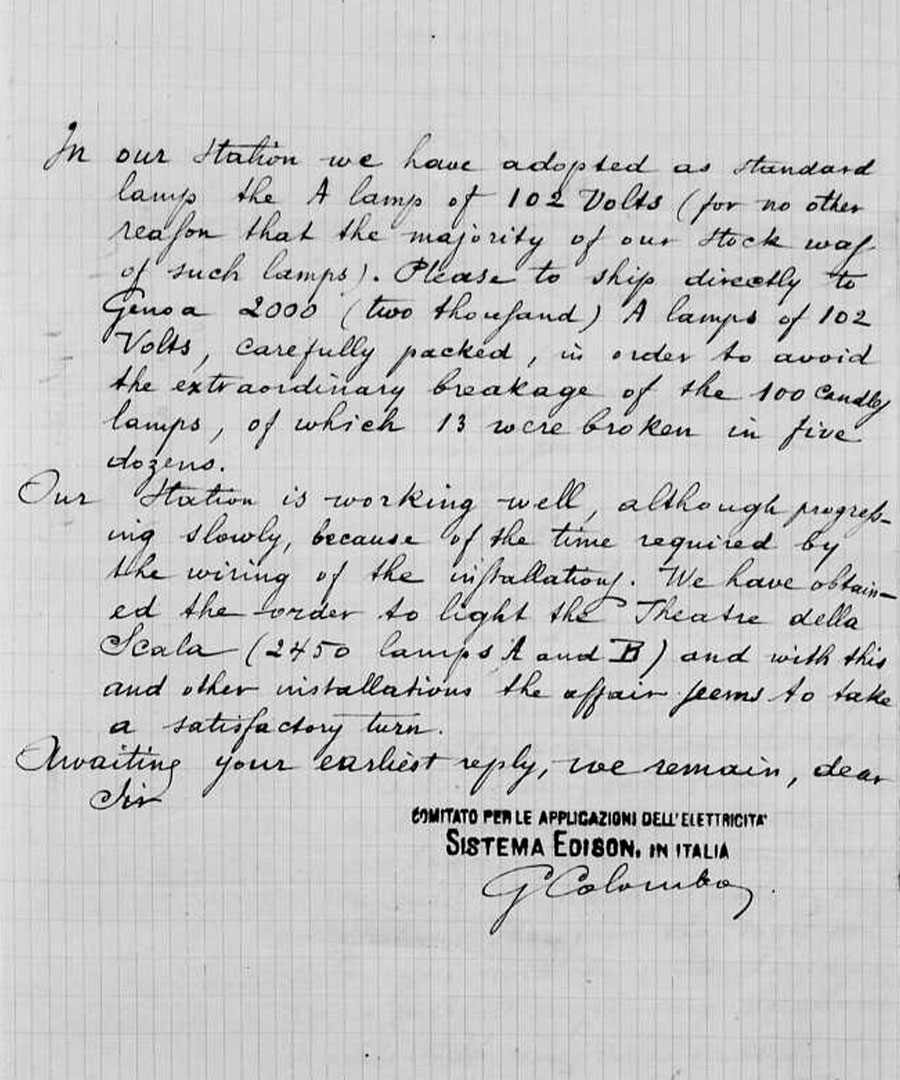 In our Station we have adopted as standard
lamp the A lamp of 102 Volts (for no other
reason that the majority of our stock was
of such lamps). Please to ship directly to
Genoa 2000 (two thousand) A lamps of 102
Volts, carefully packed, in order to avoid
the extraordinary breakage of the 100 candles
lamps, of which 13 were broken in five
dozens.
Our Station is working well, although progress-
ing slowly, because of the time required by
the wiring of the installations. We have obtain-
ed the order to light the Theatre della
Scala (2450 lamps A and B) and with this
and other installations the affair seems to take
a satisfactory turn.
Awaiting your earliest reply, we remain, dear
Sir
COMITATO PER LE APPLICAZIONI DELL'ELETTRICITA'
SISTEMA EDISON, IN ITALIA
G Colombo